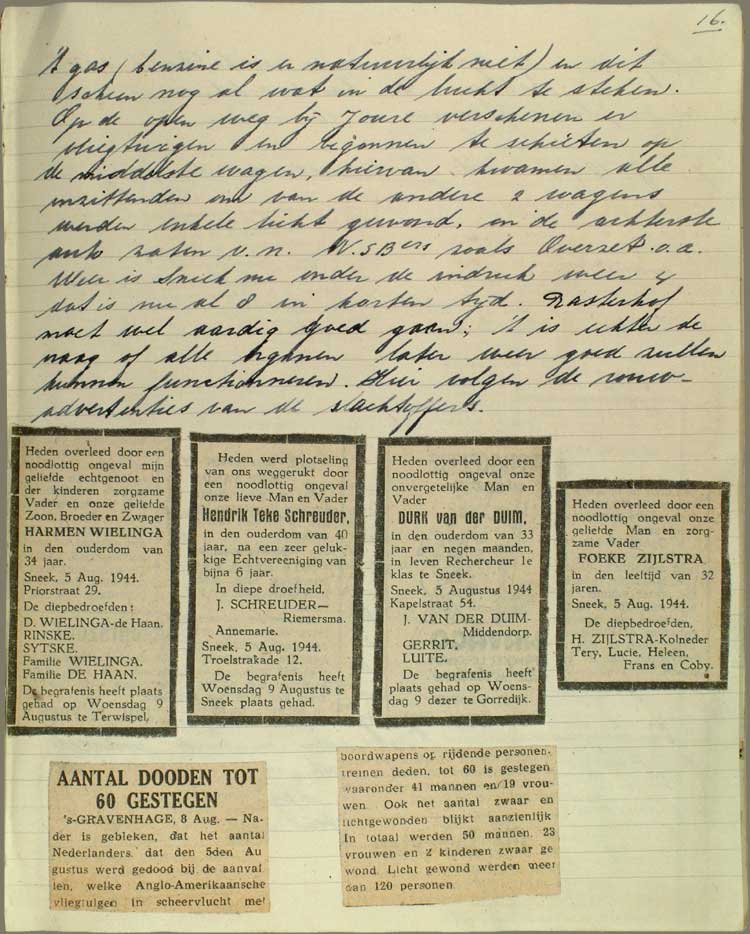 16.
't gas (benzine is er natuurlijk niet) en dit
scheen nog al wat in de lucht te steken.
Op de open weg bij Joure verschenen er
vliegtuigen en begonnen te schieten op
de middelste wagen, hiervan kwamen alle
inzittenden om van de andere 2 wagens
werden enkele licht gewond, in de achterste
auto zaten v.n. N.S.Bers zoals Overzet o.a.
Weer is Sneek nu onder de indruk weer 4
dat is nu al 8 in korten tijd. Dasterhof
moet wel aardig goed gaan; 't is echter de
vraag of alle organen later weer goed zullen
kunnen functionneren. Hier volgen de rouw-
advertenties van de slachtoffers.
Heden overleed door een
noodlottig ongeval mijn
geliefde echtgenoot en
der kinderen zorgzame
Vader en onze geliefde
Zoon, Broeder en Zwager
HARMEN WIELINGA
in den ouderdom van
34 jaar.
Sneek, 5 Aug. 1944.
Priorstraat 29.
De diepbedroefden:
D. WIELINGA-de Haan.
RINSKE.
SYTSKE.
Familie WIELINGA.
Familie DE HAAN.
De begrafenis heeft plaats
gehad op Woensdag 9
Augustus te Terwispel,
Heden werd plotseling
van ons weggerukt door
een noodlottig ongeval
onze lieve Man en Vader
Hendrik Teke Schreuder,
in den ouderdom van 40
jaar, na een zeer geluk-
kige Echtvereeniging van
bijna 6 jaar.
In diepe droefheid,
J. SCHREUDER—
Riemersma.
Annemarie.
Sneek, 5 Aug. 1944.
Troelstrakade 12.
De begrafenis heeft
Woensdag 9 Augustus te
Sneek plaats gehad.
Heden overleed door een
noodlottig ongeval onze
onvergetelijke Man en
Vader
DURK van der DUIM,
in den ouderdom van 33
jaar en negen maanden,
in leven Rechercheur 1e
klas te Sneek.
Sneek, 5 Augustus 1944
Kapelstraat 54.
J. VAN DER DUIM-
Middendorp.
GERRIT.
LUITE.
De begrafenis heeft
plaats gehad op Woens-
dag 9 dezer te Gorredijk.
Heden overleed door een
noodlottig ongeval onze
geliefde Man en zorg-
zame Vader
FOEKE ZIJLSTRA
in den leeftijd van 32
jaren.
Sneek, 5 Aug. 1944.
De diepbedroefden,
H. ZIJLSTRA-Kolneder
Tery, Lucie, Heleen,
Frans en Coby.
AANTAL DOODEN TOT
60 GESTEGEN
's-GRAVENHAGE, 8 Aug. — Na-
der is gebleken, dat het aantal
Nederlanders, dat den 5den Au
gustus werd gedood bij de aanval
len, welke Anglo-Amerikaansche
vliegtuigen in scheervlucht met
boordwapens op rijdende personen-
treinen deden, tot 60 is gestegen
waaronder 41 mannen en 19 vrou-
wen. Ook het aantal zwaar en
lichtgewonden blijkt aanzienlijk
In totaal werden 50 mannen, 23
vrouwen en 2 kinderen zwaar ge
wond. Licht gewond werden meer
dan 120 personen.